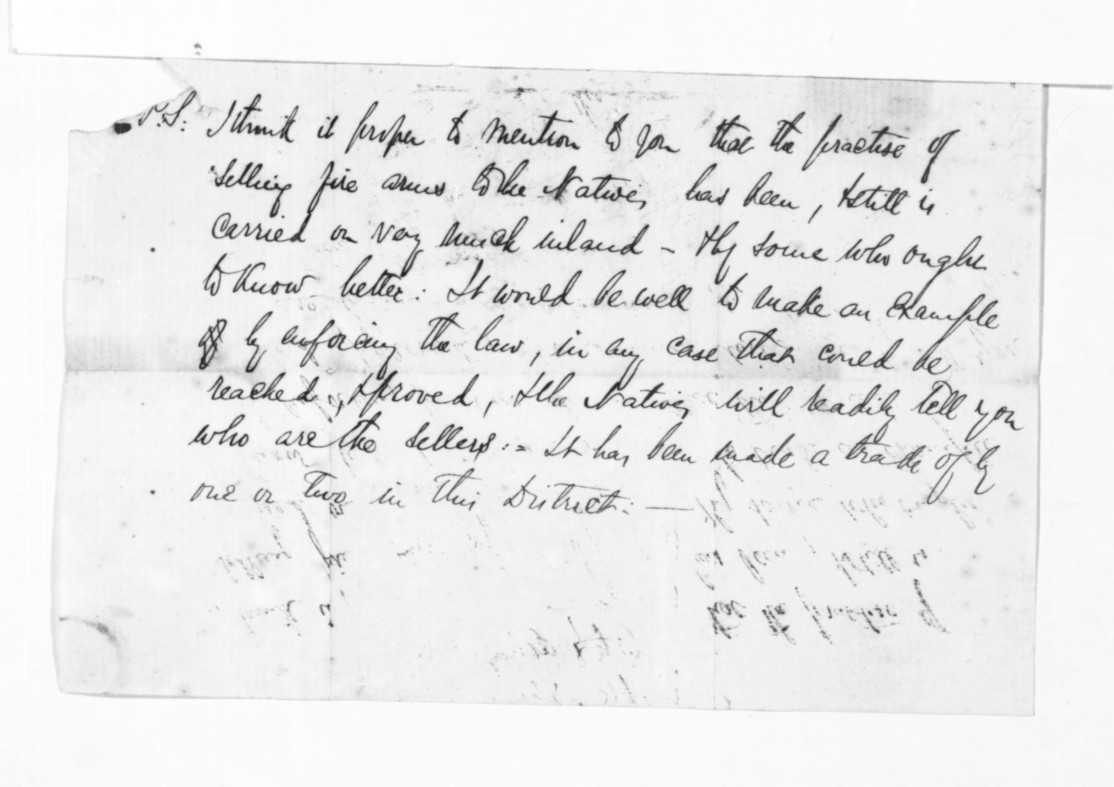 P.S: I think it proper to mention to you that the practise of
selling fire arms to the Natives has been, & still is
carried on very much inland - & by some who ought
to know better: It would be well to make an example
by enforcing the law, in any case that could be
reached, & proved, & the Natives will readily tell you
who are the sellers:- It has been made a trade of by
one or two in this District: —